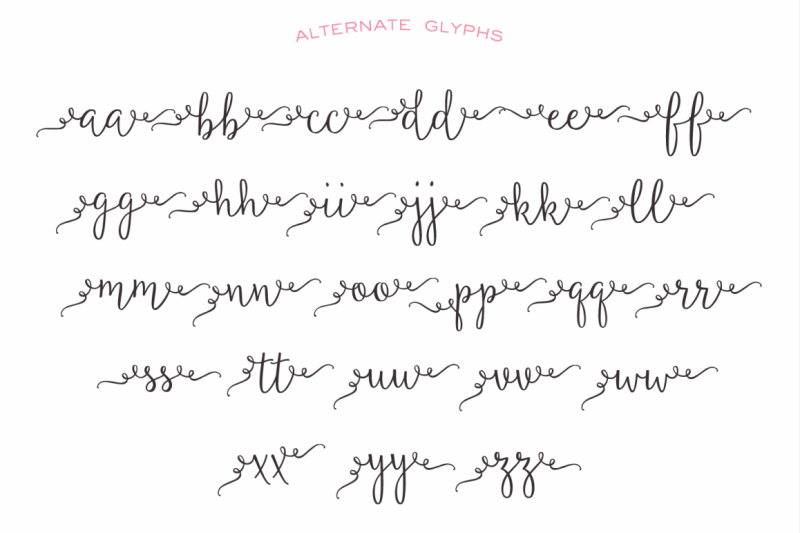 ALTERNATE GLYPHS
aa bb cc dd ee ff
gg hh ii jj kk ll
mm nn oo pp qq rr
ss tt uu vv ww
xx yy zz